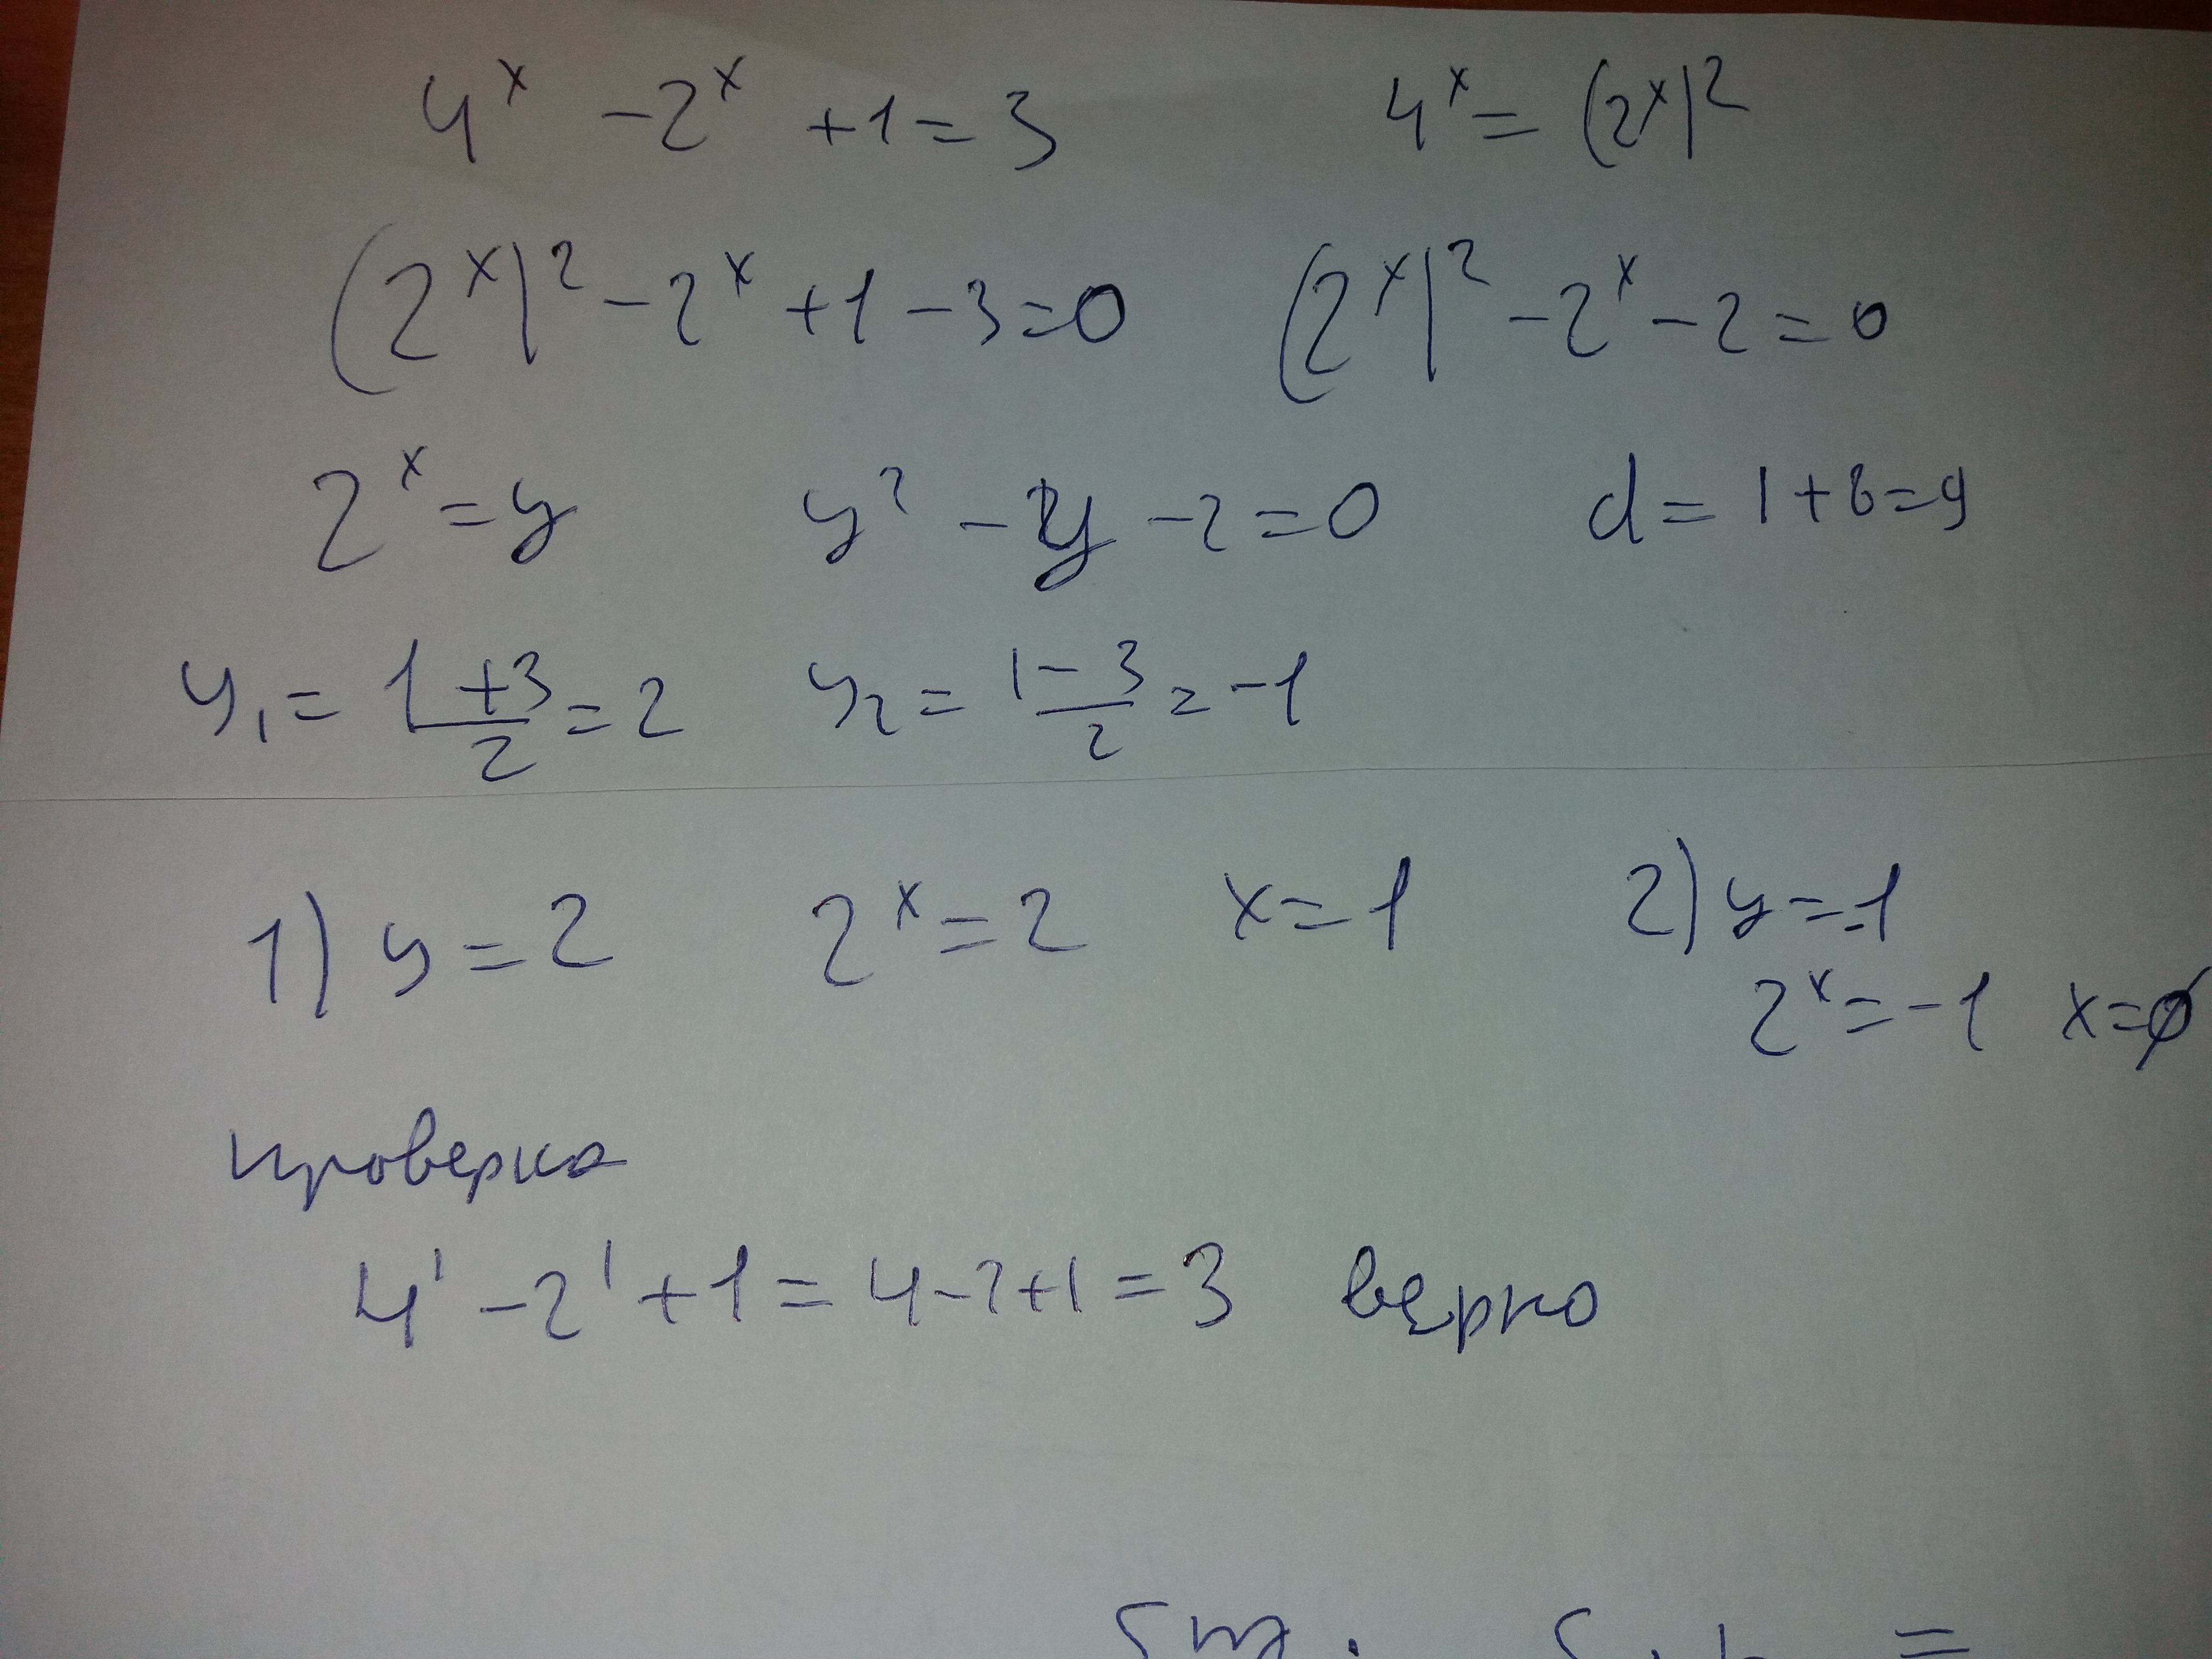 4^x - 2^x + 1 = 3    4^x = (2^x)^2
(2^x)^2 - 2^x + 1 - 3 = 0    (2^x)^2 - 2^x - 2 = 0
2^x = y    y^2 - y - 2 = 0    d = 1 + 8 = 9
y₁ = (1+3)/2 = 2    y₂ = (1-3)/2 = -1
1) y = 2    2^x = 2    x = 1    2) y = -1
2^x = -1    x = ∅
проверка
4^1 - 2^1 + 1 = 4 - 2 + 1 = 3    верно